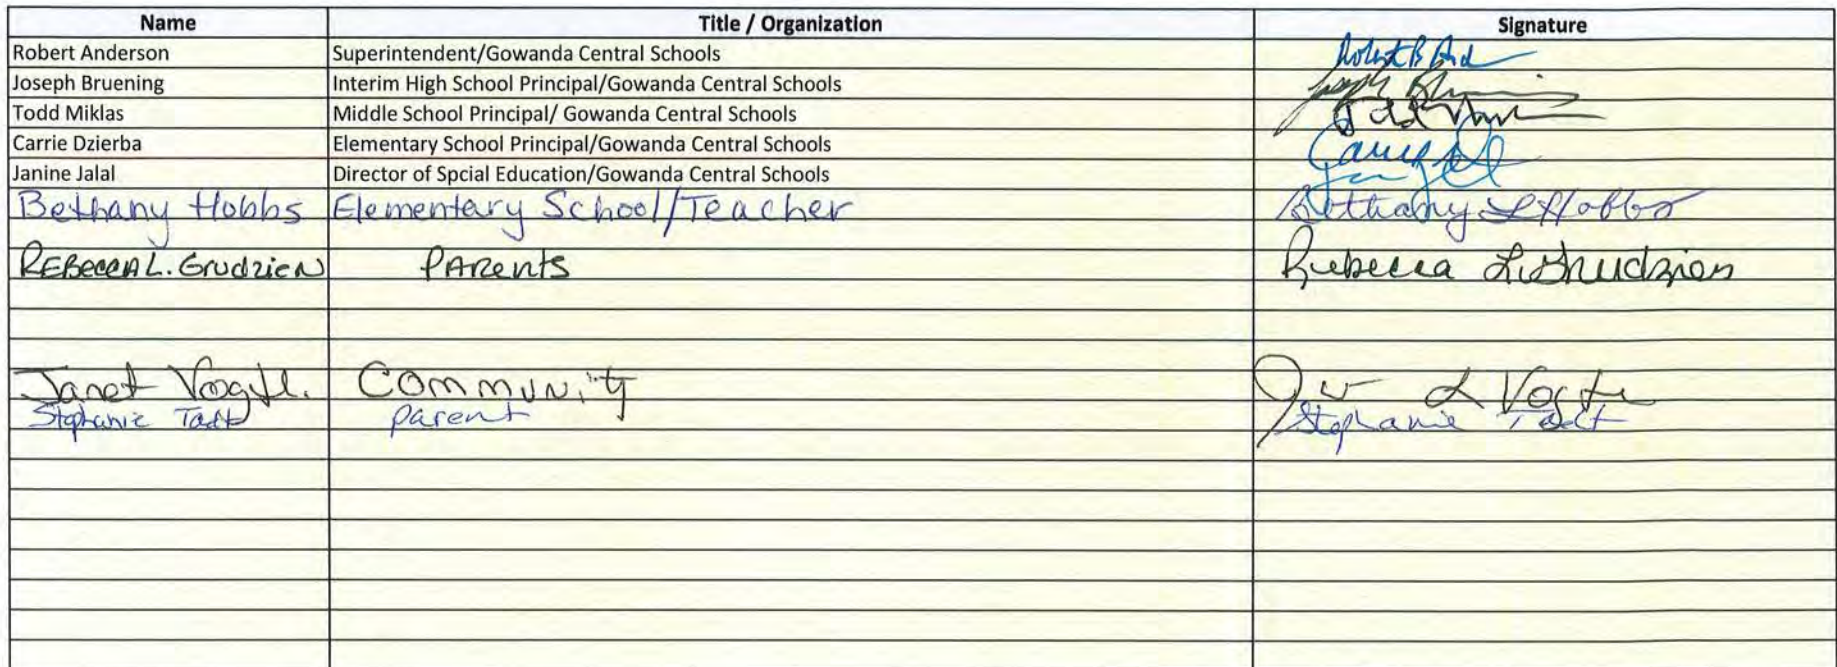 Name Title / Organization Signature
Robert Anderson Superintendent/Gowanda Central Schools Robert B
Joseph Bruening Interim High School Principal/Gowanda Central Schools Joseph
Todd Miklas Middle School Principal/ Gowanda Central Schools Todd
Carrie Dzierba Elementary School Principal/Gowanda Central Schools
Janine Jalal Director of Spcial Education/Gowanda Central Schools
Bethany Hobbs Elementary School/Teacher Bethany L Hobbs
REBECCA L. Grudzien PARents Rebecca L. Grudzien
Janet Community
Stephanie parent Stephanie